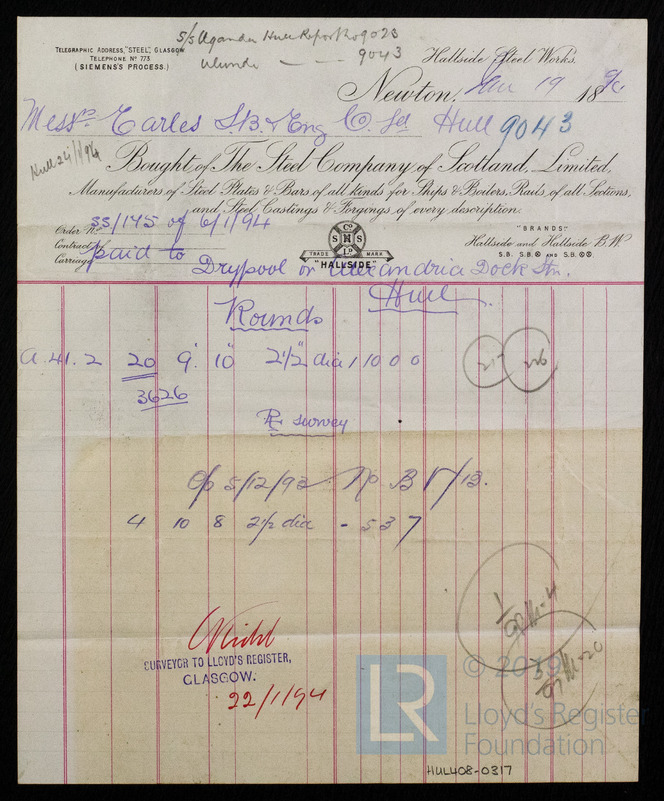 S/S Uganda Hull Report No 9023
9043
TELEGRAPHIC ADDRESS, "STEEL", GLASGOW
TELEPHONE No 773.
(SIEMENS'S PROCESS.)
Hallside Steel Works.
Newton, 19 18
Messrs Earles S.B. & Eng Co. Ld Hull 9043
Hull 24/1/94
Bought of The Steel Company of Scotland, Limited,
Manufacturers of Steel Plates & Bars of all kinds for Ships & Boilers, Rails of all Sections,
and Steel Castings & Forgings of every description.
Order No. SS/145 of 6/1/94
Contract
Carriage paid to
Co
S N S
LD
TRADE MARK
"HALLSIDE"
"BRANDS"
Hallside and Hallside B.W
S.B. S.B. AND S.B.
Drypool or Alexandria Dock Stn.
Hull
Rounds
A.41.2 20 9' 10" 2 1/2" dia 1 10 0 0
3626
survey
O/o 5/12/93 No B 5/13.
4 10 8 2 1/2 dia - 5 3 7
SURVEYOR TO LLOYD'S REGISTER,
GLASGOW.
22/1/94
© 2019
LR
Lloyd's Register
Foundation
HUL408-0317